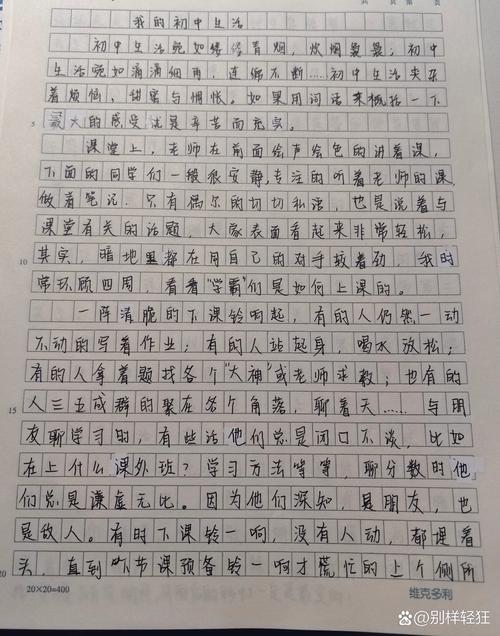 我的初中生活
初中生活宛如缕缕青烟，炊烟袅袅；初中
生活宛如滴滴细雨，连绵不断……初中生活夹杂
着烦恼、甜蜜与惆怅。如果用词语来概括一下
最大的感受就是辛苦而充实。
5
课堂上，老师在前面绘声绘色的讲着课，
下面的同学们一般很安静，专注的听着老师的课，
做着笔记。只有偶尔的切切私语，也是说着与
课堂有关的话题，大家表面看起来非常轻松，
10
其实，暗地里都在用自己的对手较着劲，我时
常环顾四周，看看“学霸”们是如何上课的。
一阵清脆的下课铃响起，有的人仍然一动
不动的写着作业；有的人站起身，喝水放松；
有的人拿着题找各个“大神”或老师求教；也有的
15
人三五成群的聚在各个角落，聊着天……与朋
友聊学习时，有些话他们总是闭口不谈，比如
在上什么课外班？学习方法等等，聊分数时他
们总是谦虚无比。因为他们深知，是朋友，也
是敌人。有时下课铃一响，没有人动，都埋着
20
头，直到下节课预备铃一响才慌忙的上个厕所
20×20=400
维克多利
@别样轻狂